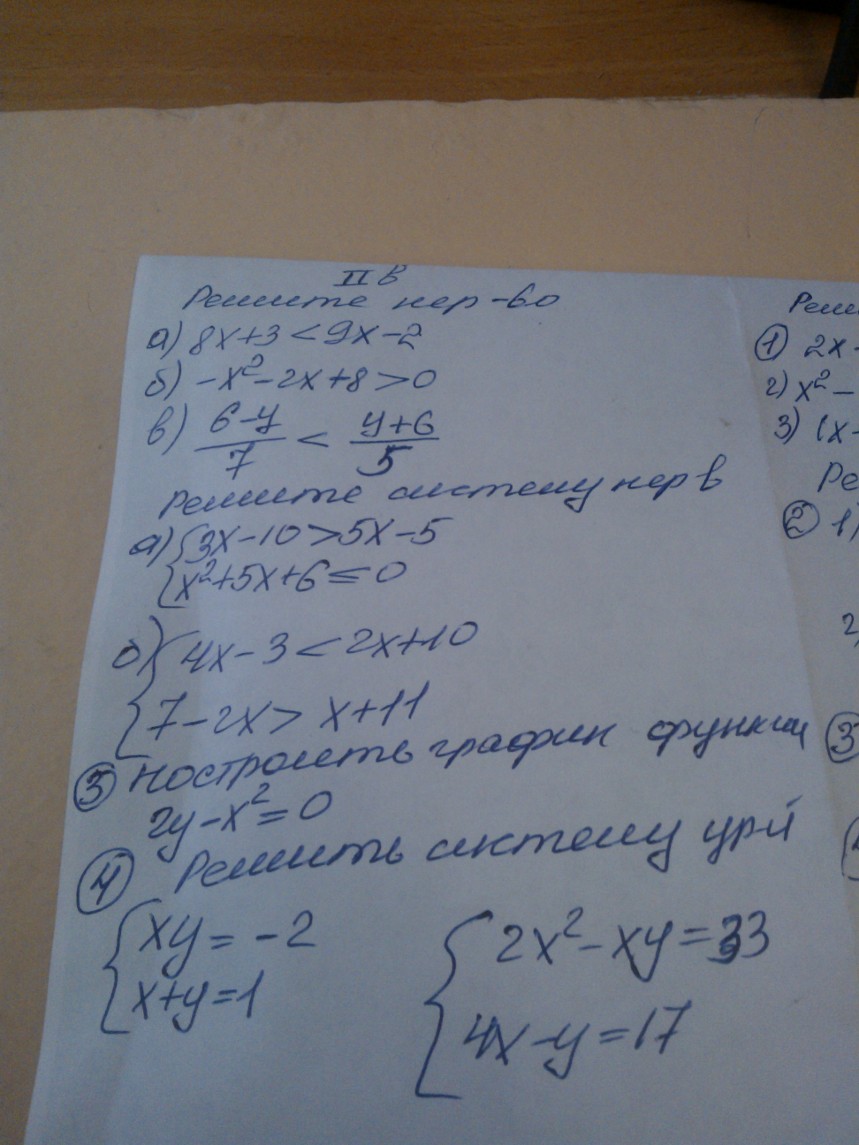 II в
Решите нер-во
а) 8x+3<9x-2
б) -x²-2x+8>0
в) (6-y)/7 < (y+6)/5
Решите систему нер в
а) { 3x-10>5x-5
x²+5x+6≤0
б) { 4x-3<2x+10
7-2x> x+11
③ Построить график функции
2y-x²=0
④ Решить систему ур й
{ xy=-2
x+y=1
{ 2x²-xy=33
4x-y=17
① 2x-
2) x²-
3) (x-
② 1)
2)
③